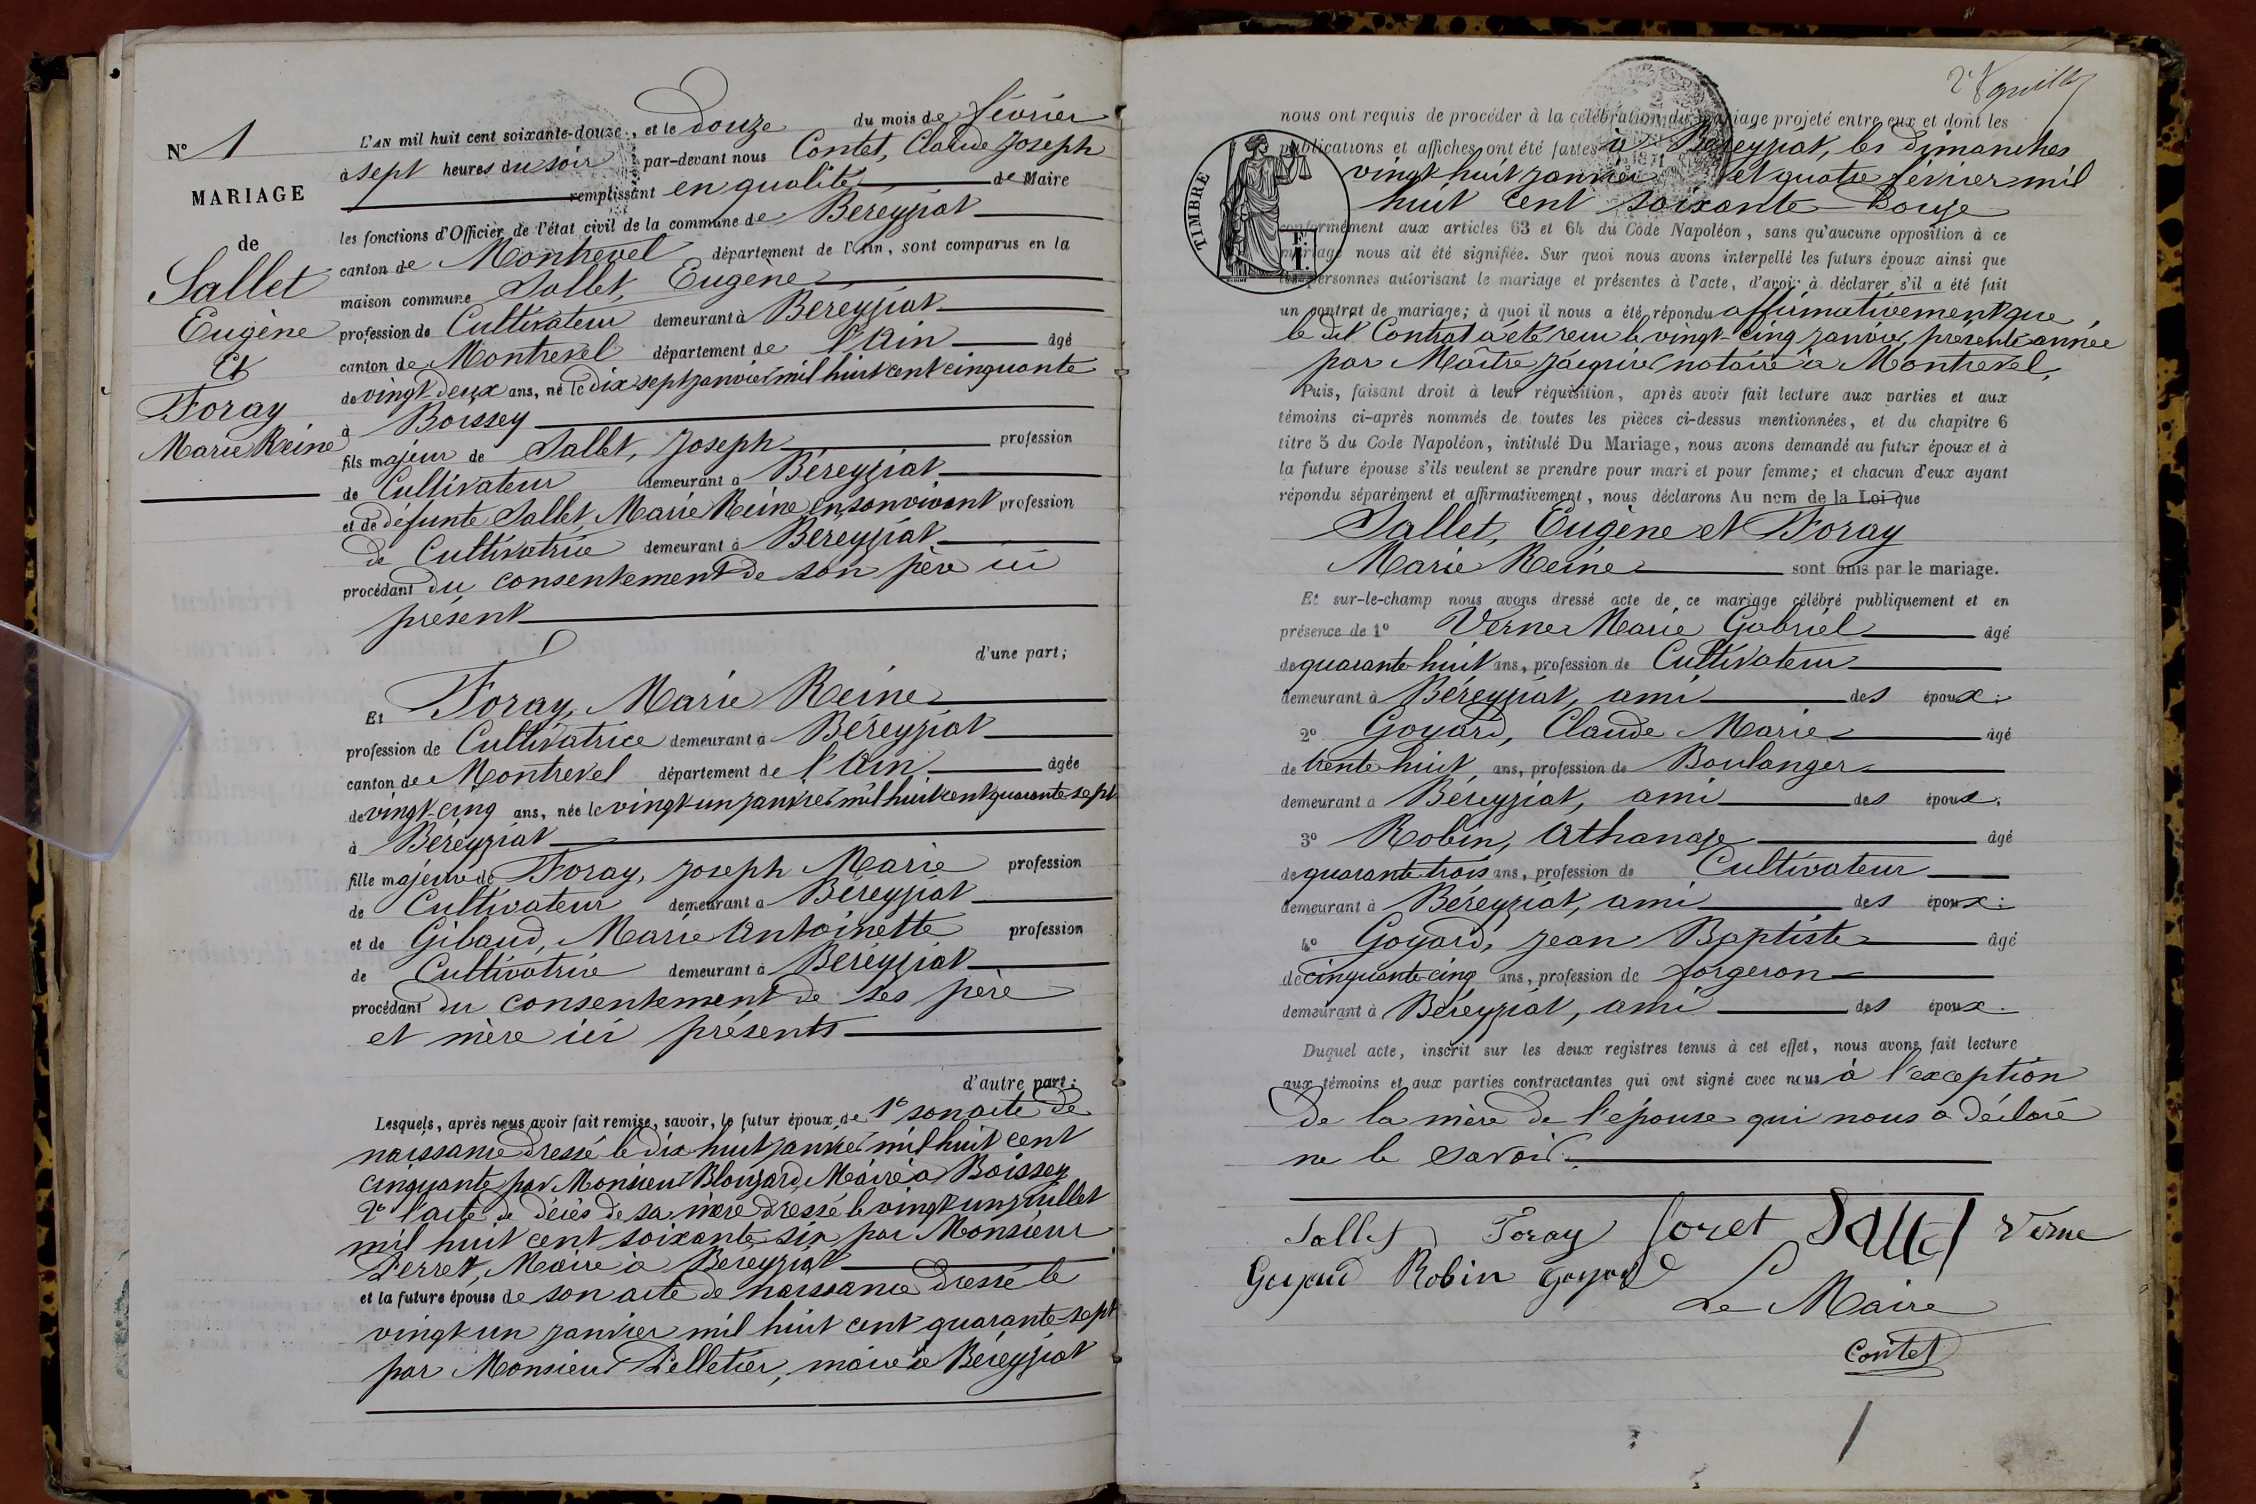 N° 1
MARIAGE
de
Sallet
Eugène
Et
Foray
Marie Reine
L'AN mil huit cent soixante-douze, et le douze du mois de février
à sept heures du soir par-devant nous Contet, Claude Joseph
remplissant en qualité de Maire
les fonctions d'Officier de l'état civil de la commune de Béreyziat
canton de Montrevel département de l'Ain, sont comparus en la
maison commune Sallet, Eugène
profession de Cultivateur demeurant à Béreyziat
canton de Montrevel département de l'Ain âgé
de vingt-deux ans, né le dix sept janvier mil huit cent cinquante
à Boissey
fils majeur de Sallet, Joseph profession
de Cultivateur demeurant à Béreyziat
et de défunte Sallet, Marie Reine en son vivant profession
de Cultivatrice demeurant à Béreyziat
procédant du consentement de son père ici
présent
d'une part;
Et Foray, Marie Reine
profession de Cultivatrice demeurant à Béreyziat
canton de Montrevel département de l'Ain âgée
de vingt-cinq ans, née le vingt un janvier mil huit cent quarante-sept
à Béreyziat
fille majeure de Foray, Joseph Marie profession
de Cultivateur demeurant à Béreyziat
et de Gibaud, Marie Antoinette profession
de Cultivatrice demeurant à Béreyziat
procédant du consentement de ses père
et mère ici présents
d'autre part;
Lesquels, après nous avoir fait remise, savoir, le futur époux de 1° son acte de
naissance dressé le dix huit janvier mil huit cent
cinquante par Monsieur Blouzard Maire à Boissey
2° l'acte de décès de sa mère dressé le vingt un juillet
mil huit cent soixante six par Monsieur
Perret, Maire à Béreyziat
et la future épouse de son acte de naissance dressé le
vingt un janvier mil huit cent quarante-sept
par Monsieur Pelletier, maire à Béreyziat
TIMBRE
nous ont requis de procéder à la célébration du mariage projeté entre eux et dont les
publications et affiches ont été faites à Béreyziat, les dimanches
vingt huit janvier et quatre février mil
huit cent soixante-Douze
conformément aux articles 63 et 64 du Code Napoléon, sans qu'aucune opposition à ce
mariage nous ait été signifiée. Sur quoi nous avons interpellé les futurs époux ainsi que
les personnes autorisant le mariage et présentes à l'acte, d'avoir à déclarer s'il a été fait
un contrat de mariage; à quoi il nous a été répondu affirmativement que
le dit Contrat a été reçu le vingt-cinq janvier, présente année
par Maître Jacquier notaire à Montrevel,
Puis, faisant droit à leur réquisition, après avoir fait lecture aux parties et aux
témoins ci-après nommés de toutes les pièces ci-dessus mentionnées, et du chapitre 6
titre 5 du Code Napoléon, intitulé Du Mariage, nous avons demandé au futur époux et à
la future épouse s'ils veulent se prendre pour mari et pour femme; et chacun d'eux ayant
répondu séparément et affirmativement, nous déclarons Au nom de la Loi que
Sallet, Eugène et Foray
Marie Reine sont unis par le mariage.
Et sur-le-champ nous avons dressé acte de ce mariage célébré publiquement et en
présence de 1° Verne Marie Gabriel âgé
de quarante huit ans, profession de Cultivateur
demeurant à Béreyziat, ami des époux;
2° Goyard, Claude Marie âgé
de trente-huit ans, profession de Boulanger
demeurant à Béreyziat, ami des époux;
3° Robin, Athanaze âgé
de quarante trois ans, profession de Cultivateur
demeurant à Béreyziat, ami des époux;
4° Goyard, Jean Baptiste âgé
de cinquante cinq ans, profession de forgeron
demeurant à Béreyziat, ami des époux.
Duquel acte, inscrit sur les deux registres tenus à cet effet, nous avons fait lecture
aux témoins et aux parties contractantes qui ont signé avec nous à l'exception
de la mère de l'épouse qui nous a déclaré
ne le savoir.
Sallet Foray foret Sallet Verne
Goyard Robin Goyard
Le Maire
Contet